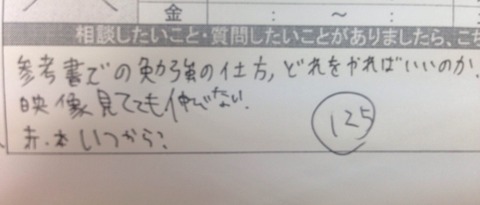 金 : ～ :
相談したいこと・質問したいことがありましたら、こち
参考書での勉強の仕方, どれをやればいいのか.
映像見てても伸びない.
赤本いつから?
125